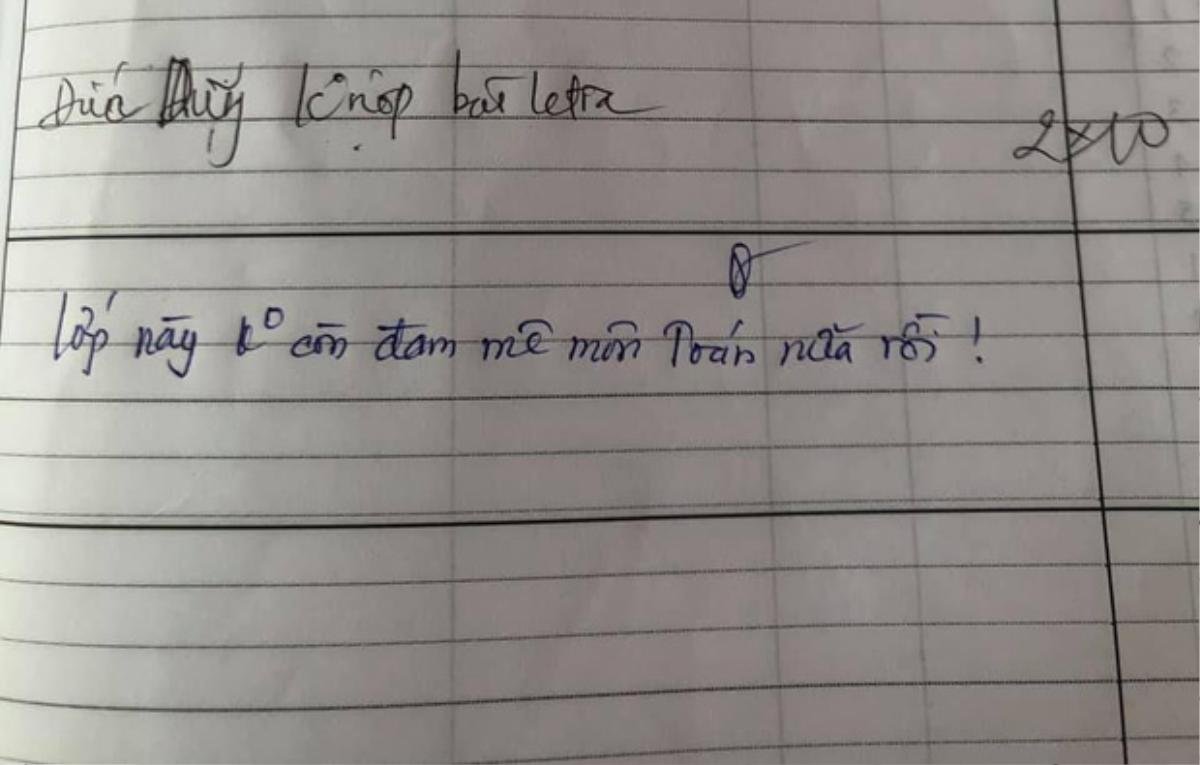 Đức Duy k nộp bài ktra
2x10
Lớp này k° còn đam mê môn Toán nữa rồi!